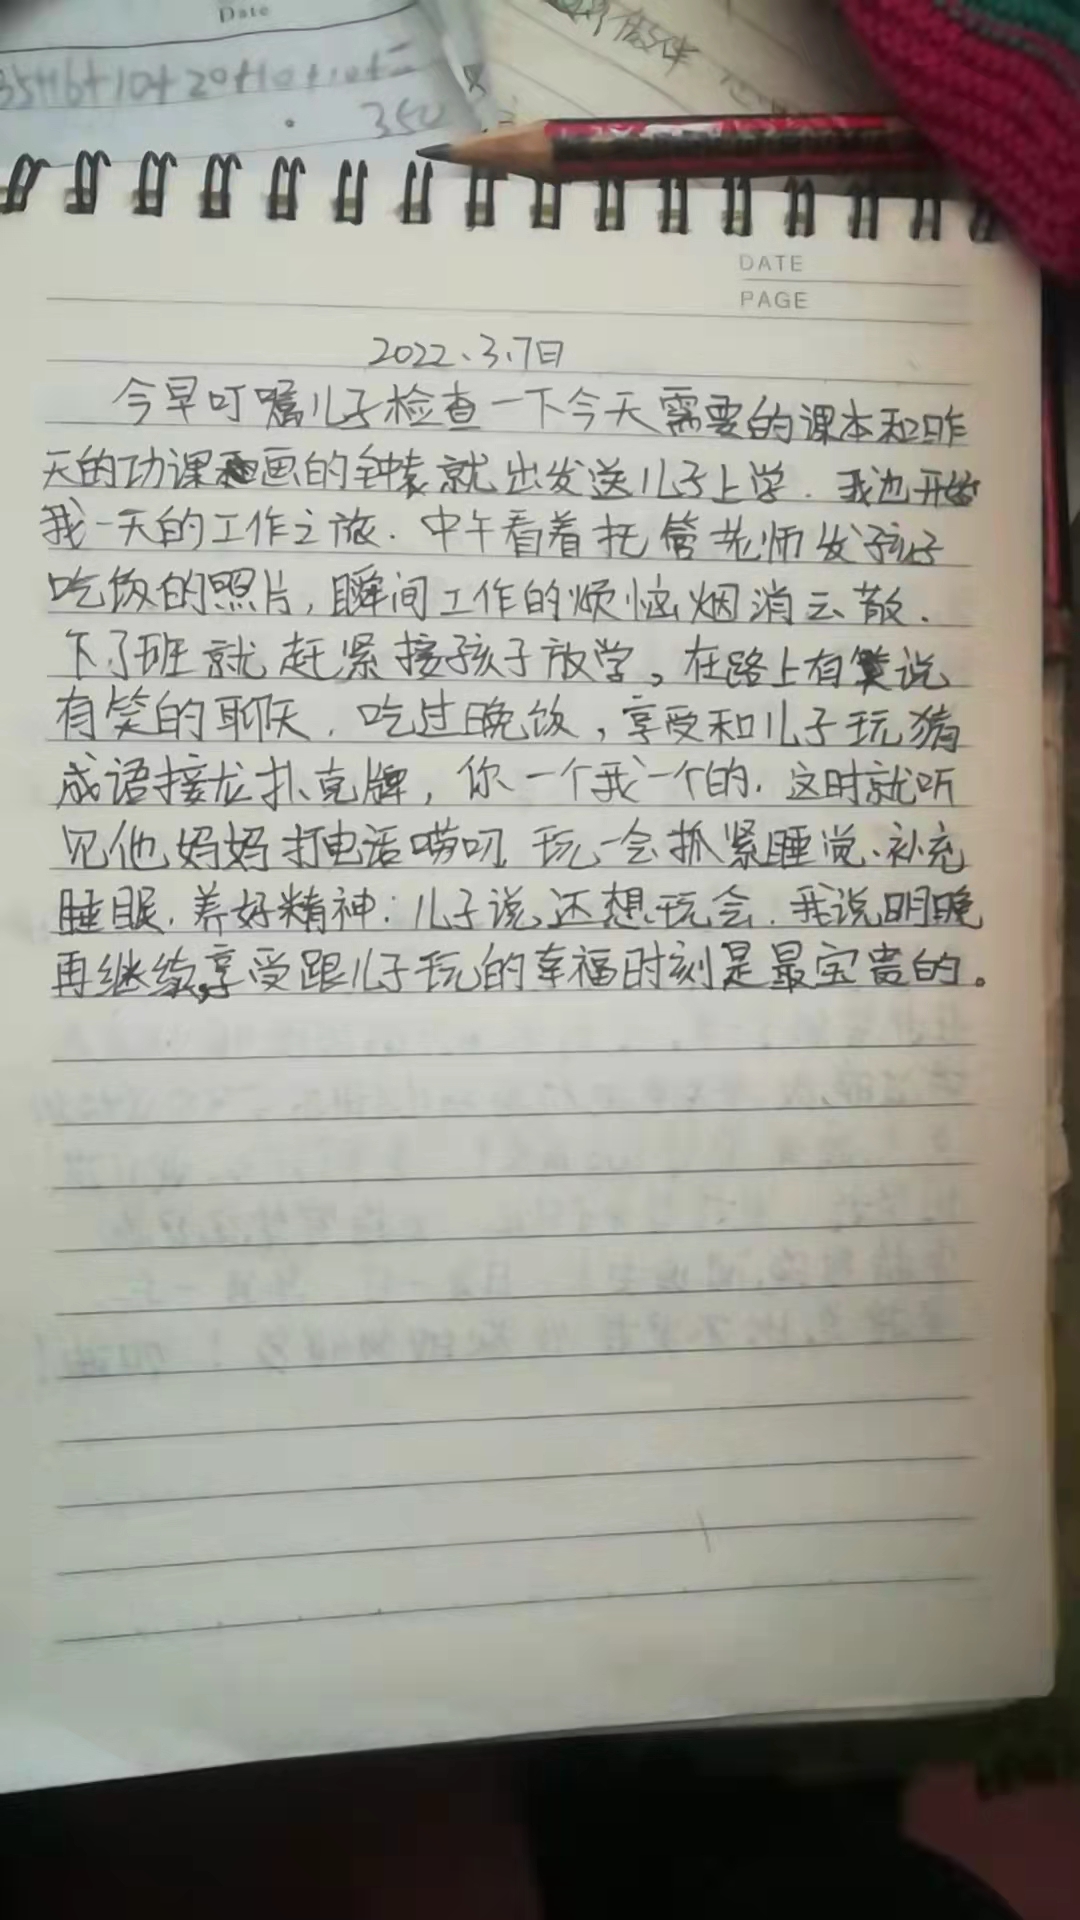 Date
35+16+10+20+10+10+=
350
DATE
PAGE
2022、3、7日
今早叮嘱儿子检查一下今天需要的课本和昨
天的功课画的钟表就出发送儿子上学．我也开始
我一天的工作之旅．中午看着托管老师发孩子
吃饭的照片，瞬间工作的烦恼烟消云散．
下了班就赶紧接孩子放学。在路上有说
有笑的聊天．吃过晚饭，享受和儿子玩猜
成语接龙扑克牌，你一个我一个的．这时就听
见他妈妈打电话唠叨玩一会抓紧睡觉、补充
睡眠．养好精神：儿子说，还想玩会．我说明晚
再继续，享受跟儿子玩的幸福时刻是最宝贵的。